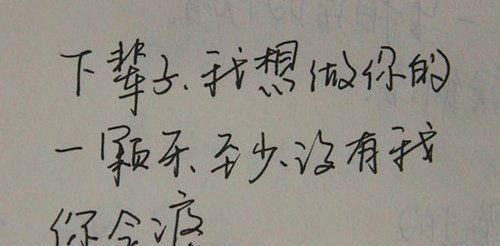 下辈子、我想做你的
一颗牙、至少、没有我
你会疼